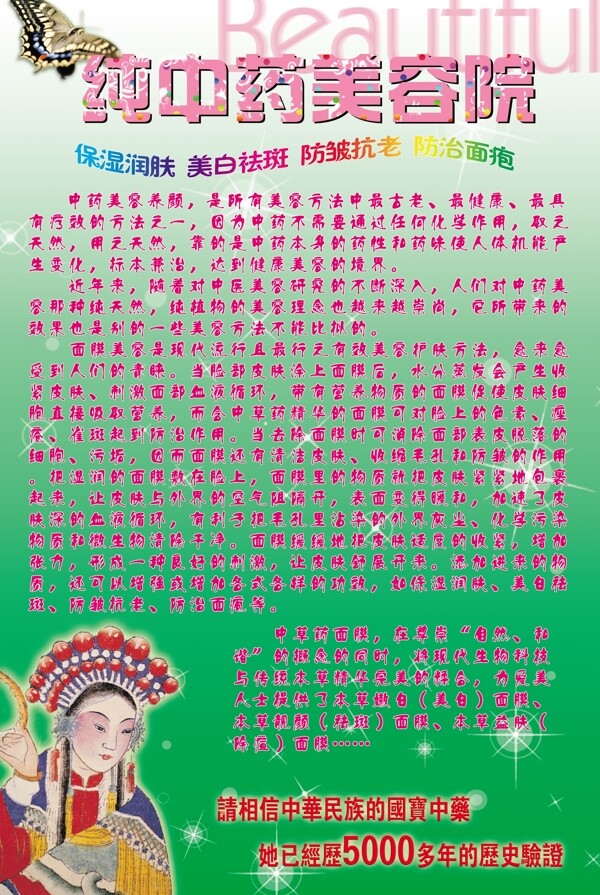 Beautiful
纯中药美容院
保湿润肤 美白祛斑 防皱抗老 防治面疱
中药美容养颜，是所有美容方法中最古老、最健康、最具
有疗效的方法之一，因为中药不需要通过任何化学作用，取之
天然，用之天然，靠的是中药本身的药性和药味使人体机能产
生变化，标本兼治，达到健康美容的境界。
近年来，随着对中医美容研究的不断深入，人们对中药美
容那种纯天然，纯植物的美容理念也越来越崇尚，它所带来的
效果也是别的一些美容方法不能比拟的。
面膜美容是现代流行且最行之有效美容护肤方法，愈来愈
受到人们的青睐。当脸部皮肤涂上面膜后，水分蒸发会产生收
紧皮肤、刺激面部血液循环，带有营养物质的面膜促使皮肤细
胞直接吸取营养，而含中草药精华的面膜可对脸上的色素、痤
疮、雀斑起到防治作用。当去除面膜时可消除面部表皮脱落的
细胞、污垢，因而面膜还有清洁皮肤、收缩毛孔和防皱的作用
。把湿润的面膜敷在脸上，面膜里的物质就把皮肤紧紧地包裹
起来，让皮肤与外界的空气阻隔开，表面变得暖和，加速了皮
肤深的血液循环，有利于把毛孔里沾染的外界灰尘、化学污染
物质和微生物清除干净。面膜缓缓地把皮肤适度的收紧，增加
张力，形成一种良好的刺激，让皮肤舒展开来。添加进来的物
质，还可以增强或增加各式各样的功效，如保湿润肤、美白祛
斑、防皱抗老、防治面疱等。
中草药面膜，在尊崇“自然、和
谐”的概念的同时，将现代生物科技
与传统本草精华完美的糅合，为爱美
人士提供了本草嫩白（美白）面膜、
本草靓颜（祛斑）面膜、本草益肤（
除痘）面膜……
請相信中華民族的國寶中藥
她已經歷5000多年的歷史驗證